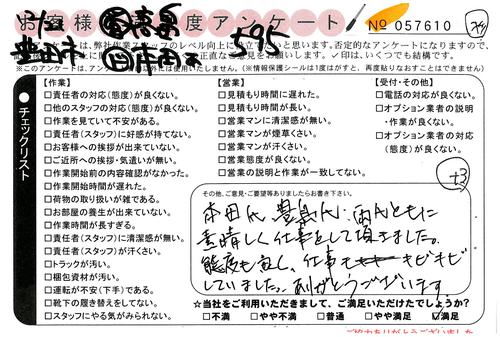 お客様満足度アンケート
No 057610
豊田市
595
は、弊社作業スタッフのレベル向上に役立てたいと思います。否定的なアンケートになりますので、
正直なご意見をお願いします。✓印は、いくつでも結構です。
※このアンケートは、アンケート以外には使用いたしません。(※情報保護シールは1度はがすと、再度貼りなおすことはできません)
チェックリスト
【作業】
□責任者の対応(態度)が良くない。
□他のスタッフの対応(態度)が良くない。
□作業を見ていて不安がある。
□責任者(スタッフ)に好感が持てない。
□お客様への挨拶が出来ていない。
□ご近所への挨拶・気遣いが無い。
□作業開始前の内容確認がなかった。
□作業開始時間が遅れた。
□荷物の取り扱いが雑である。
□お部屋の養生が出来ていない。
□作業時間が長すぎる。
□責任者(スタッフ)に清潔感が無い。
□責任者(スタッフ)が汗くさい。
□トラックが汚い。
□梱包資材が汚い。
□運転が不安(下手)である。
□靴下の履き替えをしてない。
□スタッフにやる気がみられない。
【営業】
□見積もり時間に遅れた。
□見積もり時間が長い。
□営業マンに清潔感が無い。
□営業マンが煙草くさい。
□営業マンが汗くさい。
□営業態度が良くない。
□営業の説明と作業が一致してない。
【受付・その他】
□電話の対応が良くない。
□オプション業者の説明
・作業が良くない。
□オプション業者の対応
(態度)が良くない。
+3
その他、ご意見・ご要望等ありましたらお書き下さい。
本田氏、豊島氏、両氏ともに
素晴しく仕事をして頂きました。
態度も良し、仕事もキビキビ
していました。ありがとうございます。
☆当社をご利用いただきまして、ご満足いただけたでしょうか?
□不満 □やや不満 □普通 □やや満足 ☑満足
ご協力ありがとうございました